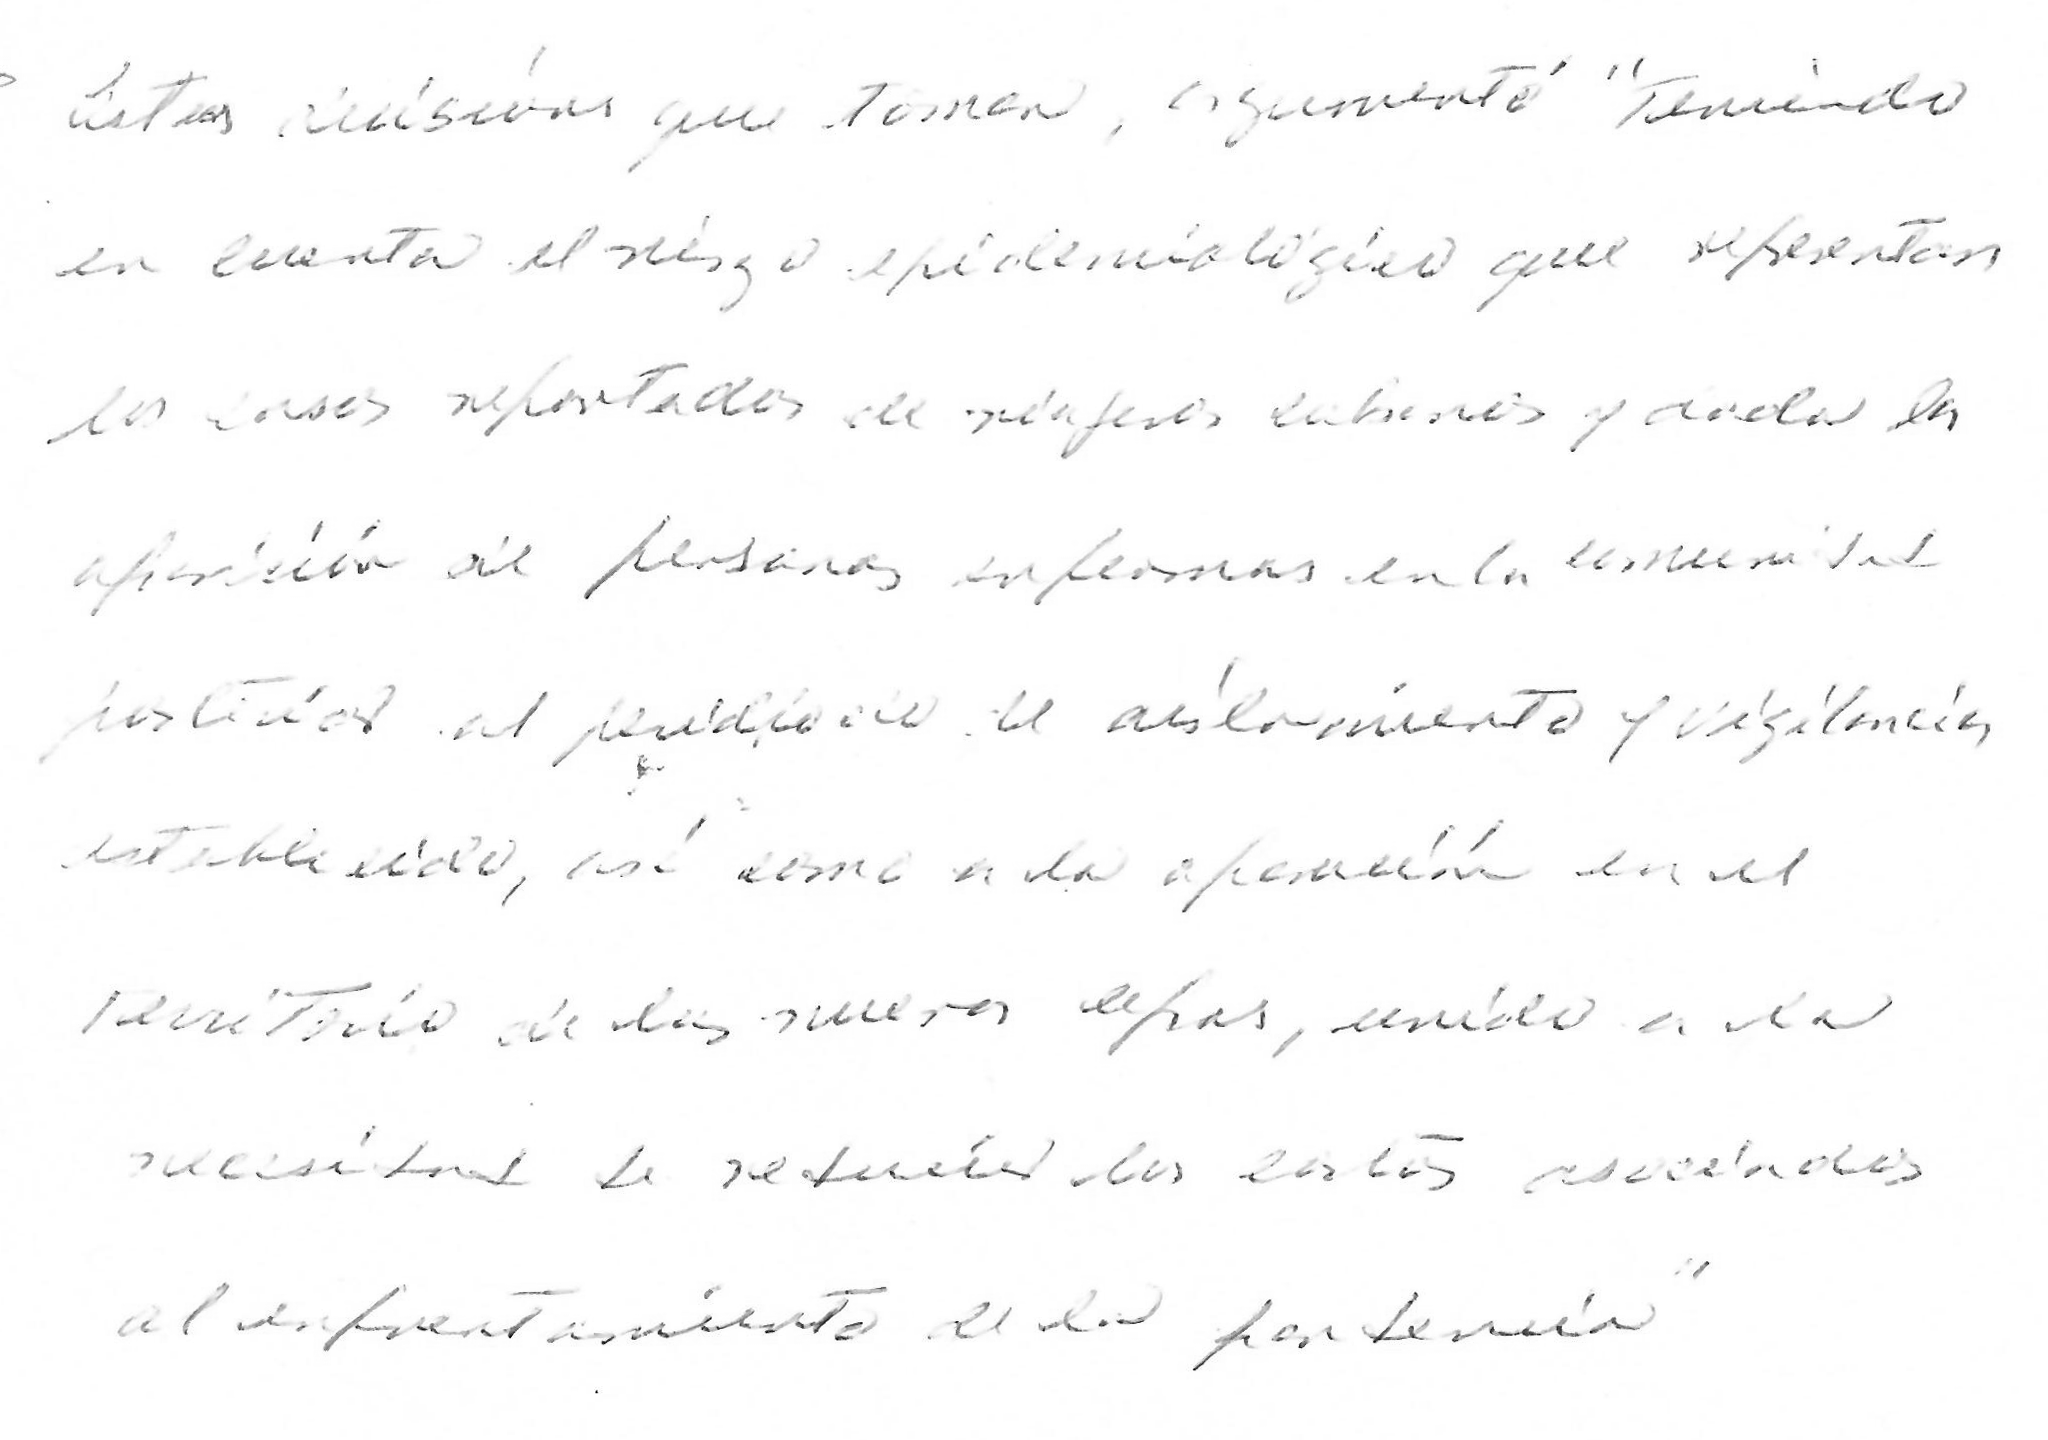 éstas decisiones que toman, argumentó "Teniendo
en cuenta el riesgo epidemiológico que representan
los casos reportados de viajeros cubanos y dada la
aparición de personas enfermas en la comunidad
posterior al período de aislamiento y vigilancia
establecido, así como a la aparición en el
territorio de las nuevas cepas, unido a la
necesidad de reducir los costos asociados
al enfrentamiento de la pandemia"